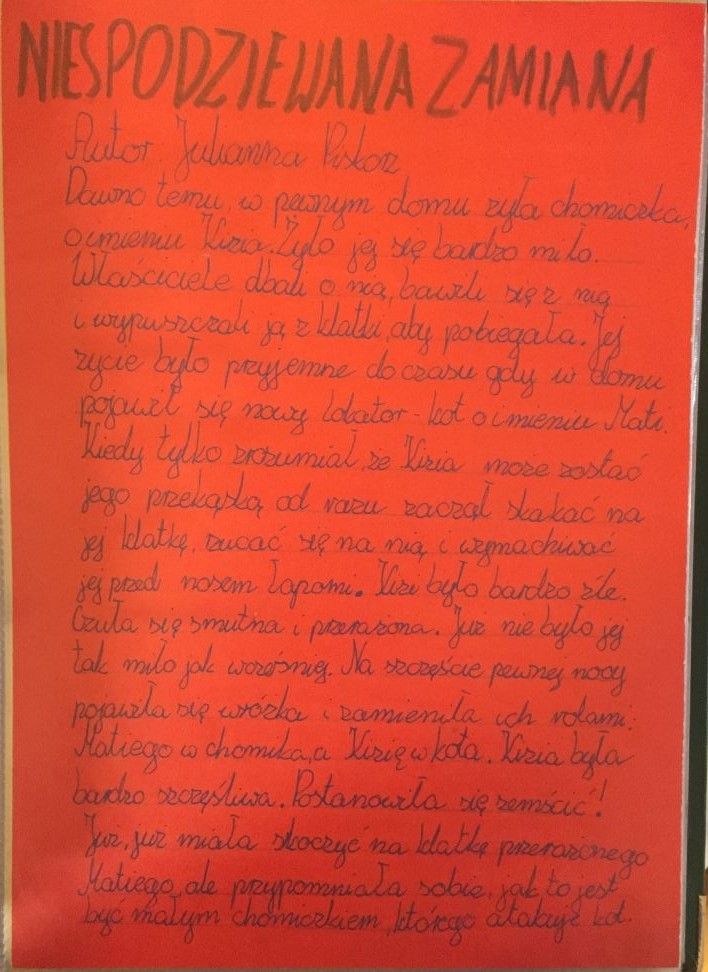 NIESPODZIEWANA ZAMIANA
Autor Julianna Piskorz
Dawno temu, w pewnym domu żyła chomiczka,
o imieniu Kizia. Żyło jej się bardzo miło.
Właściciele dbali o nią, bawili się z nią
i wypuszczali ją z klatki, aby pobiegała. Jej
życie było przyjemne do czasu gdy w domu
pojawił się nowy lokator - kot o imieniu Mati.
Kiedy tylko zrozumiał, że Kizia może zostać
jego przekąską od razu zaczął skakać na
jej klatkę, rzucać się na nią i wymachiwać
jej przed nosem łapami. Kizi było bardzo źle.
Czuła się smutna i przerażona. Już nie było jej
tak miło jak wcześniej. Na szczęście pewnej nocy
pojawiła się wróżka i zamieniła ich rolami:
Matiego w chomika, a Kizię w kota. Kizia była
bardzo szczęśliwa. Postanowiła się zemścić!
Już, już miała skoczyć na klatkę przerażonego
Matiego, ale przypomniała sobie, jak to jest
być małym chomiczkiem, którego atakuje kot.